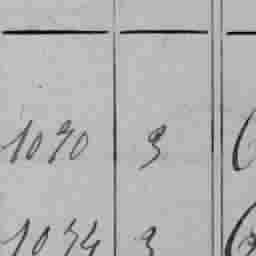 1070 3
1074 3